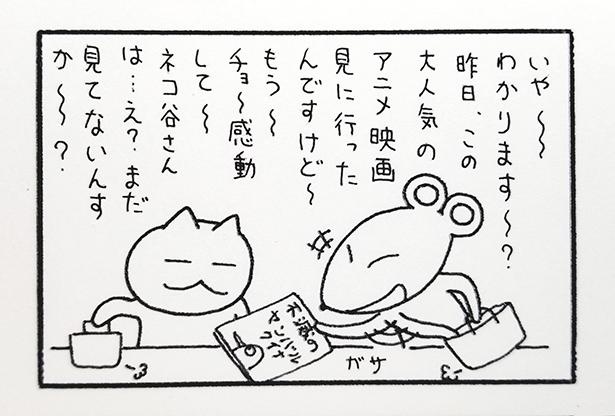 いや〜〜
わかります〜?
昨日、この
大人気の
アニメ映画
見に行った
んですけど〜
もう〜
チョ〜感動
して〜
ネコ谷さん
は…え?まだ
見てないんす
か〜〜?
ヤンバル
クイナ
ガサ